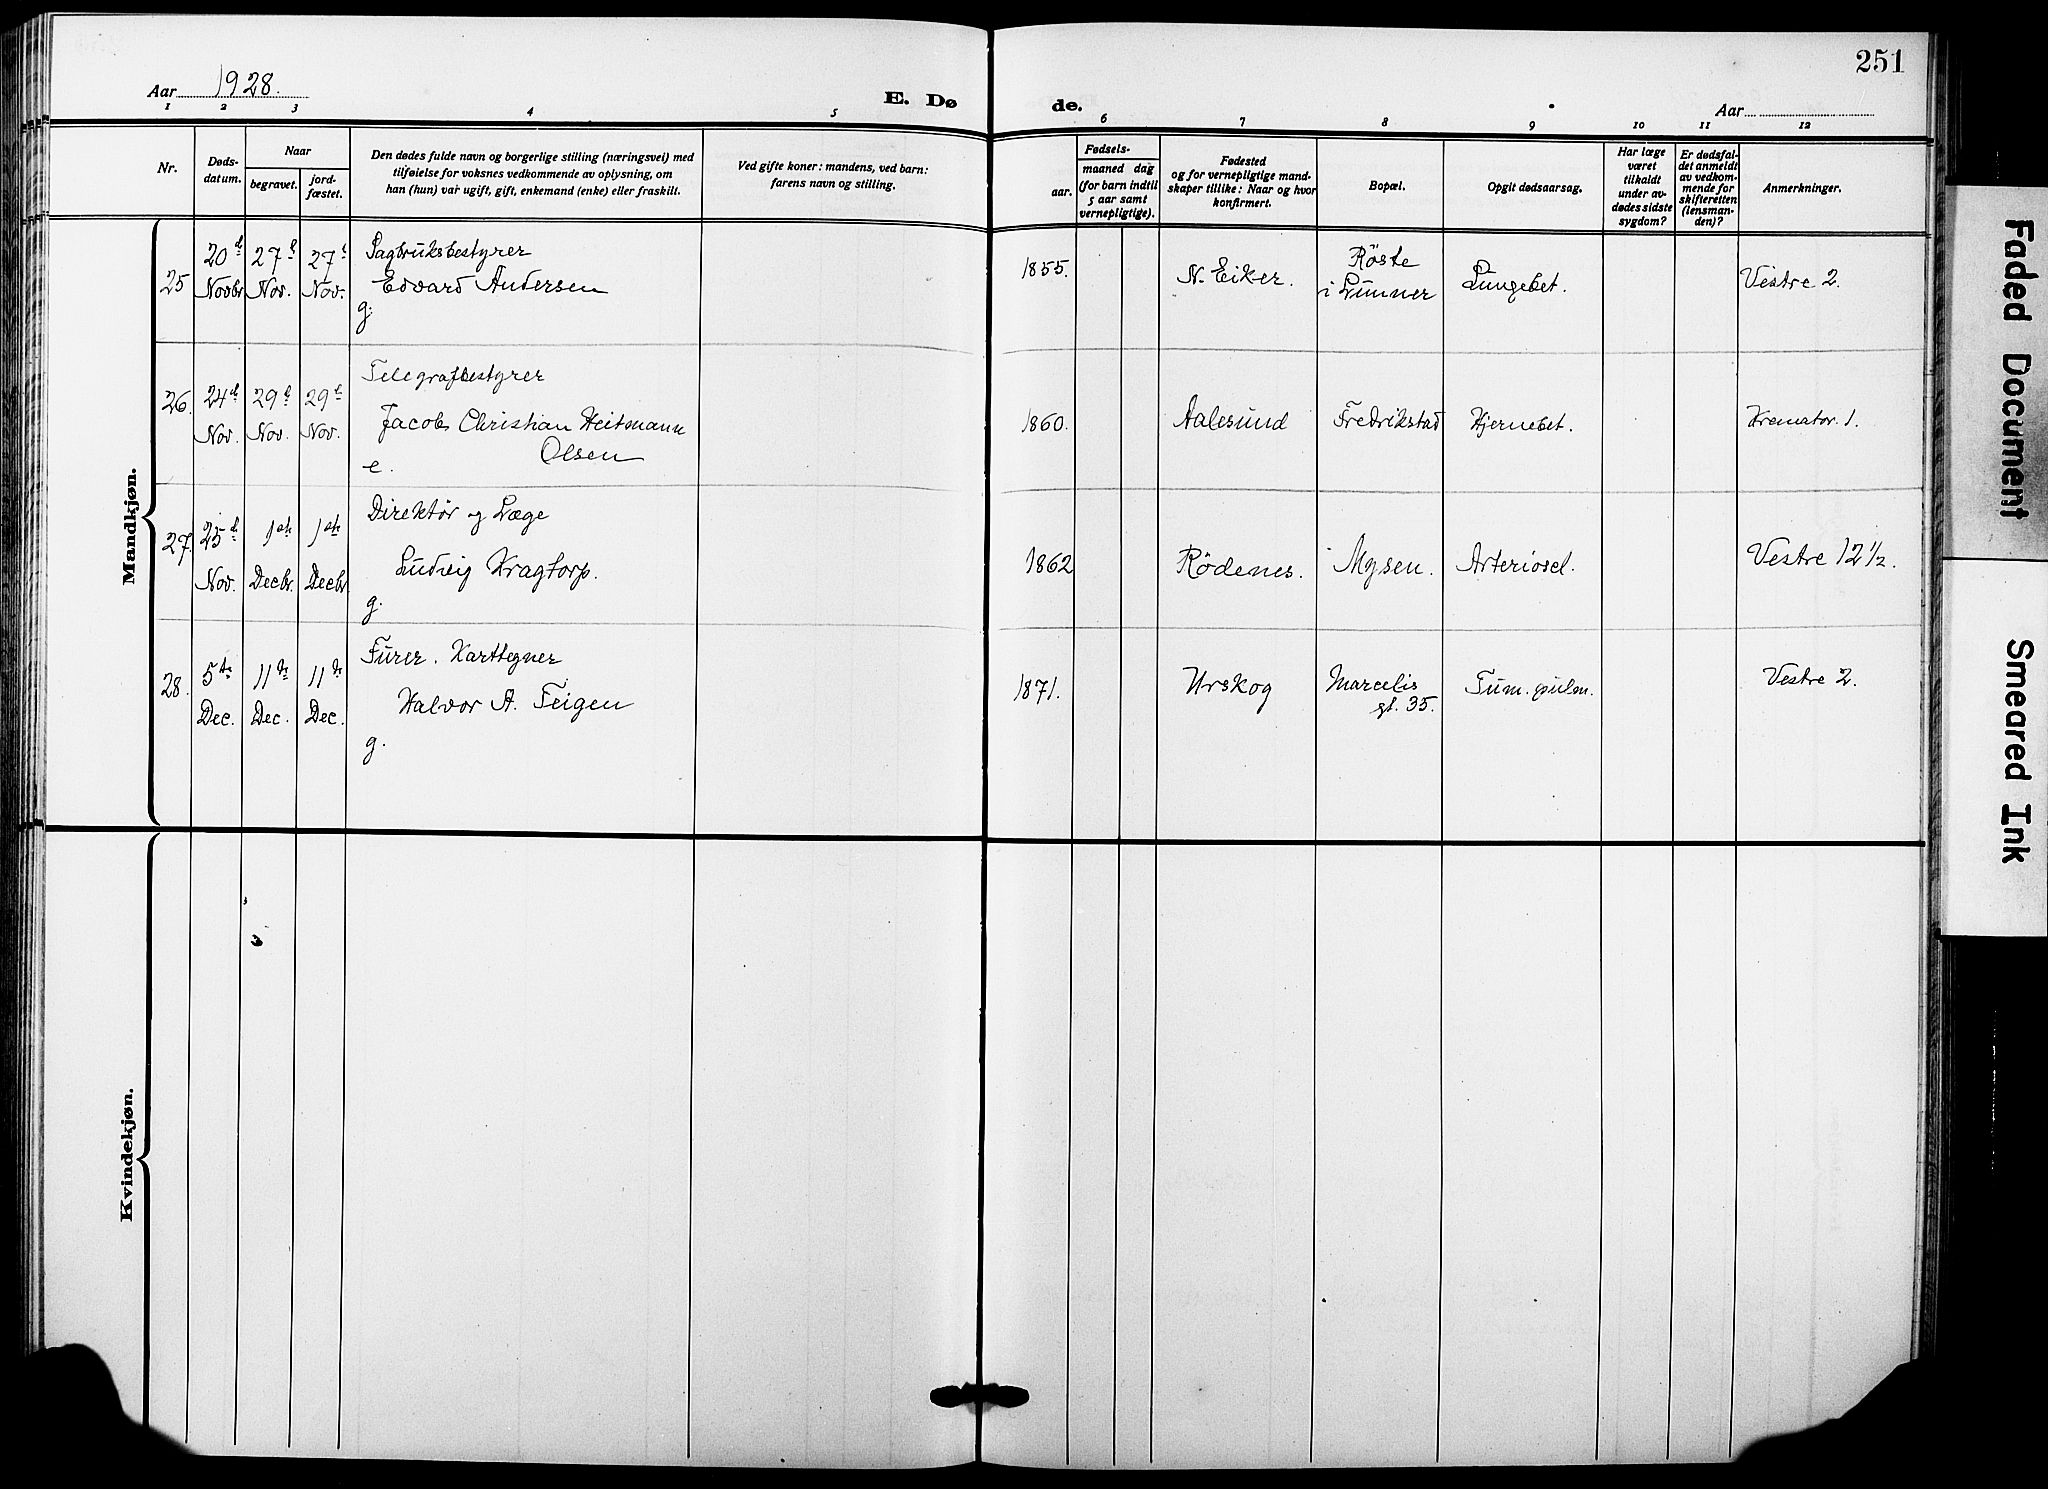 251
Aar 1928.
E. Døde.
Aar
1 2 3 4 5 6 7 8 9 10 11 12
Nr.
Døds-
datum.
Naar
begravet.
jord-
fæstet.
Den dødes fulde navn og borgerlige stilling (næringsvei) med
tilføielse for voksnes vedkommende av oplysning, om
han (hun) var ugift, gift, enkemand (enke) eller fraskilt.
Ved gifte koner: mandens, ved barn:
farens navn og stilling.
Fødsels-
aar.
maaned dag
(for barn indtil
5 aar samt
vernepligtige).
Fødested
og for vernepligtige mand-
skaper tillike: Naar og hvor
konfirmert.
Bopæl.
Opgit dødsaarsag.
Har læge
været
tilkaldt
under av-
dødes sidste
sygdom?
Er dødsfal-
det anmeldt
av vedkom-
mende for
skifteretten
(lensman-
den)?
Anmerkninger.
Mandkjøn.
25
20d
Novbr
27d
Nov.
27d
Nov.
Sagbruksbestyrer
Edvard Andersen
g.
1855.
N. Eiker.
Röste
i Lunner
Lungebet.
Vestre 2.
26.
24d
Nov.
29d
Nov.
29d
Nov.
Telegrafbestyrer
Jacob Christian Heitmann
Olsen
e.
1860.
Aalesund
Fredrikstad
Hjernebet.
Kremator. 1.
27.
25d
Nov.
1ste
Decbr.
1ste
Decbr
Direktør og Læge
Ludvig Kragtorp.
g.
1862
Rödenes.
Mysen.
Arterioscl.
Vestre 12 1/2.
28.
5te
Dec.
11te
Dec.
11te
Dec.
Furer. Karttegner
Halvor A. Teigen
g.
1871.
Urskog
Marcelis
gt. 35.
Tum. pulm.
Vestre 2.
Kvindekjøn.
Faded Document
Smeared Ink